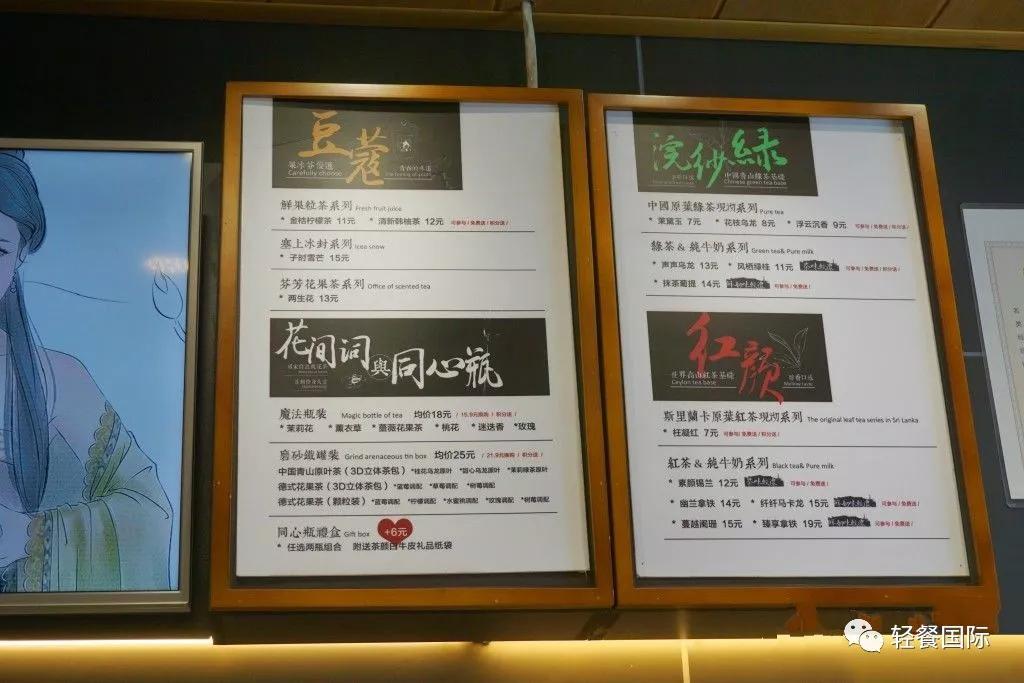 豆蔻
果冰芬優選
Carefully choose
青春的味道
The feeling of youth
鮮果粒茶系列 Fresh fruit juice
* 金桔柠檬茶 11元 * 清新韩柚茶 12元 可参与/免费送/积分送/
塞上冰封系列 Icea snow
* 子时雪芒 15元
芬芳花果茶系列 Office of scented tea
* 两生花 13元
花间词與同心瓶
魔法瓶装 Magic bottle of tea 均价18元 / 15.9元换购 / 积分送 /
* 茉莉花 * 薰衣草 * 蔷薇花果茶 * 桃花 * 迷迭香 * 玫瑰
磨砂鐵罐装 Grind arenaceous tin box 均价25元 / 21.9元换购 / 积分送 /
中国青山原叶茶（3D立体茶包）*桂花乌龙原叶 *甜心乌龙原叶 *茉莉绿茶原叶
德式花果茶（3D立体茶包）*蓝莓调配 *草莓调配 *树莓调配
德式花果茶（颗粒装）*蓝莓调配 *柠檬调配 *水蜜桃调配 *玫瑰调配 *树莓调配
同心瓶禮盒 Gift box +6元
* 任选两瓶组合 附送茶颜白牛皮礼品纸袋
浣纱綠
中國青山綠茶基礎
Chinese green tea base
中國原葉綠茶現沏系列 Pure tea
* 茉黛玉 7元 * 花枝乌龙 8元 * 浮云沉香 9元 可参与/免费送/积分送/
綠茶 & 純牛奶系列 Green tea& Pure milk
* 声声乌龙 13元 * 风栖绿桂 11元 可参与/免费送/积分送/
* 抹茶葡提 14元 可参与/免费送/
红颜
世界高山紅茶基礎
Ceylon tea base
斯里蘭卡原葉紅茶現沏系列 The original leaf tea series in Sri Lanka
* 枉凝红 7元 可参与/免费送/积分送/
紅茶 & 純牛奶系列 Black tea& Pure milk
* 素颜锡兰 12元 可参与/免费送/
* 幽兰拿铁 14元 * 纤纤马卡龙 15元 可参与/免费送/
* 蔓越阑珊 15元 * 臻享拿铁 19元 可参与/免费送/
轻餐国际